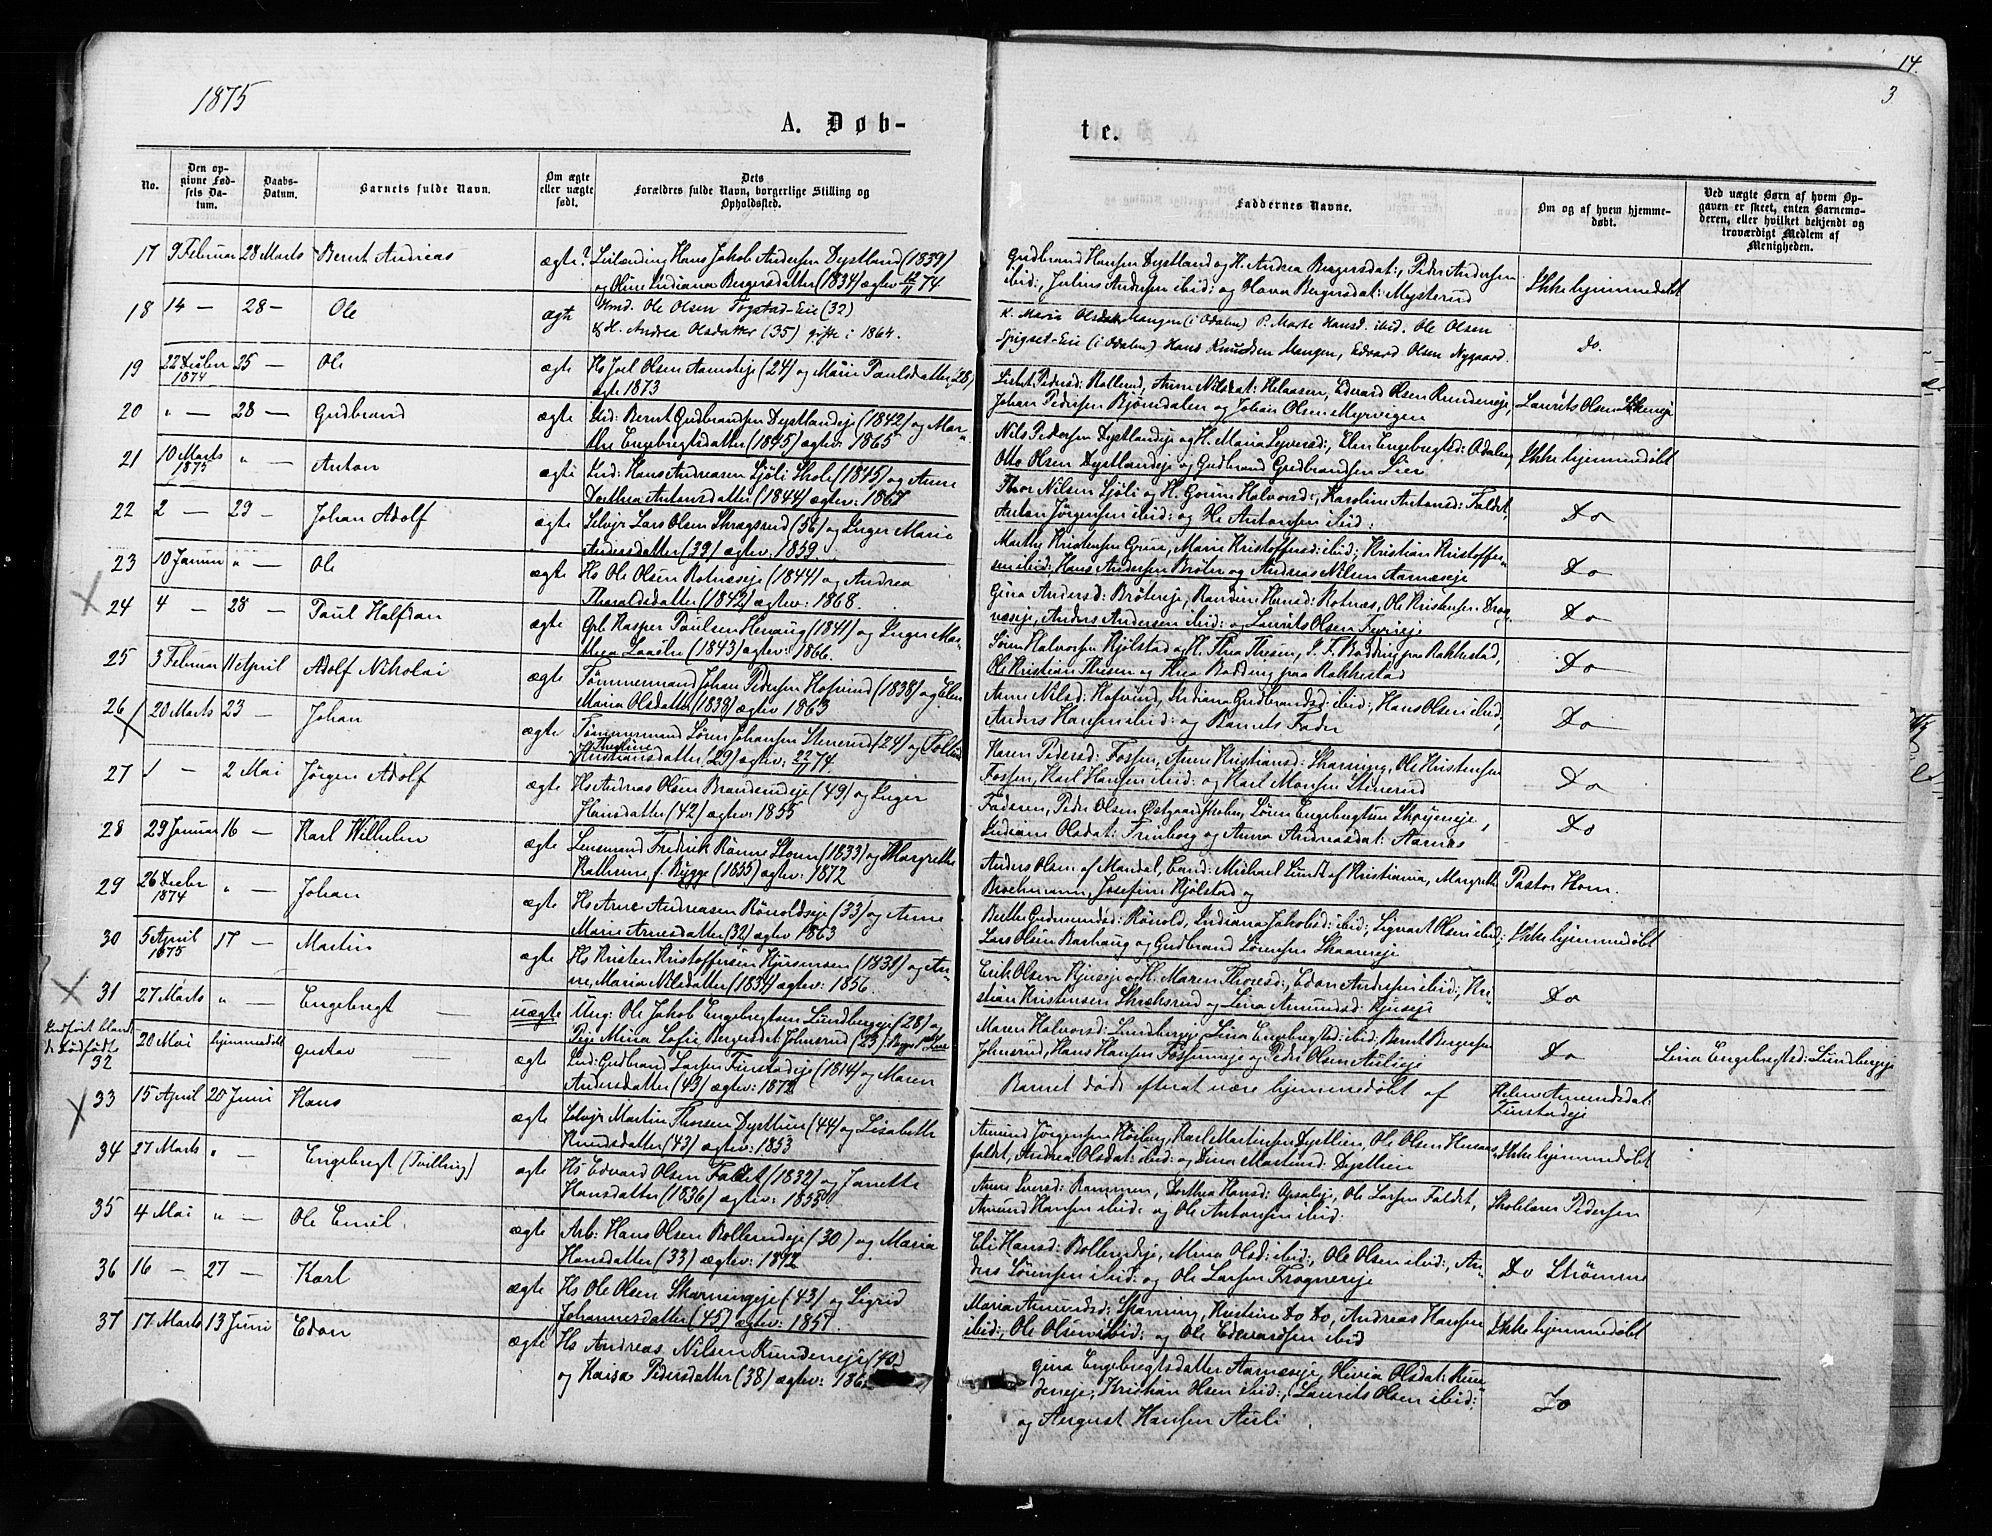 1875
14.
3
A. Døb-
te.
No.
Den opgivne Fødsels Datum.
Daabs-Datum.
Barnets fulde Navn.
Om ægte eller uægte født.
Dets Forældres fulde Navn, borgerlige Stilling og Opholdssted.
Faddernes Navne.
Om og af hvem hjemmedøbt.
Ved uægte Børn af hvem Opgaven er skeet, enten Barnemoderen, eller hvilket bekjendt og troværdigt Medlem af Menigheden.
17 9 Februar 28 Marts Bernt Andreas ægte? Hans Jakob Andersen Dystland (1839)
og Oline Indiana Bergersdatter (1834) ægtev 74
Gudbrand Hansen Dystland og H. Andrea Bergersdat:, Peder Andersen
ibid:, Julius Andersen ibid: og Hanna Bergersdat: Mysterud
Ikke hjemmedøbt
18 14 — 28 — Ole ægte Hmd. Ole Olsen Fogstad-Eie (32)
& H. Andrea Olsdatter (35) gifte i 1864.
K. Maria Olsdat Mangen (i Odalen) P. Marte Hansd. ibid. Ole Olsen
Spigset-Eie (i Odalen) Hans Knudsen Mangen, Edvard Olsen Nygaard.
Do.
19 22 Decber 1874 25 — Ole ægte Hs Joel Olsen Aamseje (24) og Marie Paulsdatter (28)
ægte 1873
Lisbet Pedersd: Rollerud, Anne Nilsdat: Helaasen, Edvard Olsen Rundereje,
Johan Pedersen Bjørndalen og Johan Olsen Myrvegen
Laurits Olsen
20 " — 28 — Gudbrand ægte Bernt Gudbrandsen Dystlandeje (1842) og Mar-
the Engebregtsdatter (1845) ægtev 1865
Nils Pedersen Dystlandeje og H. Maria Syversd:, Elen Engebregtsd: Odalen,
Otto Olsen Dystlandeje og Gudbrand Gudbrandsen Lier
Ikke hjemmedøbt
21 10 Marts 1875 " — Anton ægte Ind: Hans Andreasen Sjøli Skole (1845) og Anne
Dorthea Antonsdatter (1844) ægtev: 1867
Thor Nilsen Sjøli og H. Gorine Halvorsd:, Karoline Antonsd: Faldet,
Anton Jørgensen ibid: og Ole Antonsen ibid:
Do
22 2 — 29 — Johan Adolf ægte Selvejr Lars Olsen Skragsrud (56) og Inger Marie
Andersdatter (39) ægtev: 1859.
Marthe Kristensen Grua, Marie Kristoffersd: ibid:, Kristian Kristoffer-
sen ibid:, Hans Andersen Brøter og Andreas Nilsen Aarnæseje
Do
23 10 Januar " — Ole ægte Hs Ole Olsen Rotnæseje (1844) og Andrea
Tharaldsdatter (1842) ægtev: 1868.
Gina Andersd: Brøtereje, Randine Hansd: Rotnæs, Ole Kristensen
Anders Andersen ibid: og Laurits Olsen
Do
24 4 — 28 — Paul Halfdan ægte Grb. Kasper Paulsen Henaug (1841) og Inger Mar-
thea (1843) ægtev: 1866.
Søren Halvorsen Kjølstad og H. Thea Thesen, P. F. Bodding paa Rakkestad,
Ole Kristian Thesen og Thea Bodding paa Rakkestad
Do
25 3 Februar 11 April Adolf Nikolai ægte Tømmermand Johan Pedersen Hofvind (1838) og Elen
Maria Olsdatter (1838) ægtev 1863
Anne Nilsd: Hofvind, Indiana Gudbrandsd: ibid:, Hans Olsen ibid:,
Anders Hansen ibid: og Barnets Fader
Do
26 20 Marts 23 — Johan ægte Tømmermand Søren Johansen Stenerud (24) og
Thorine
Kristiansdatter (29) ægtev: 74.
Karen Pedersd: Fossen, Anne Kristiansd: Skarning, Ole Kristensen
Fossen, Karl Hansen ibid: og Karl Monsen Stenerud
Do
27 1 — 2 Mai Jørgen Adolf ægte Hs Andreas Olsen Brandenseje (49) og Inger
Hansdatter (42) ægtev: 1855
Faderen, Peder Olsen Østgaardskolen, Søren Engebregtsen Skøyeneje,
Indiane Olsdat: Frinborg og Anna Andreasdat: Aarnæs
Do
28 29 Januar 16 — Karl Wilhelm ægte Lensmand Fredrik Rønne (1833) og Margrethe
Kathrine f. Bygge (1855) ægtev: 1872
Anders Olsen af Mandal, Cand: Michael Lund af Kristiania, Margrethe
Brochmann, Josefine Kjølstad og
Pastor Horn.
29 26 Decber 1874 " — Johan ægte Hs Arne Andreasen Rønoldseje (33) og Anne
Marie Arnesdatter (32) ægtev 1863
Berthe Gudmundsd: Rønold, Indiana Jakobsd: ibid:, Sigvart Olsen ibid:,
Lars Olsen Barhaug og Gudbrand Sørensen Skaarereje
Ikke hjemmedøbt
30 5 April 1875 17 — Martin ægte Hs Kristen Kristoffersen (1831) og An-
ne Maria Nilsdatter (1834) ægtev: 1856.
Erik Olsen Kjuseje og H. Maren Thoresd:, Edon Andersen ibid:, Kri-
stian Kristensen Skreksrud og Lina Amundsd: Kjuseje
Do
31 27 Marts " — Engebregt uægte Ung: Ole Jakob Engebregtsen Lundbergeje (28) og
Pige Mina Sofie Bergersdat: Johnsrud (23)
Maren Halvorsd: Lundbergeje, Lina Engebregtsd: ibid:, Bernt Bergersen
Johnsrud, Hans Hansen Fossenseje og Peder Olsen Aulieje
Do
Lina Engebregtsd: Lundbergeje
Indført blandt
de Dødfødte
32 20 Mai hjemmedøbt Gustav ægte Ind: Gudbrand Larsen Finstadeje (1814) og Maren
Andersdatter (43) ægtev: 1872
Barnet døde efterat være hjemmedøbt af
Helene Amundsdat:
Finstadeje
33 15 April 20 Juni Hans ægte Selvejr Martin Thorsen Dystlien (44) og Lisabeth
Knudsdatter (43) ægtev: 1853
Amund Jørgensen Høiberg, Karl Martinsen Dystlien, Ole Olsen
Andrea Olsdat: ibid: og Dina Martinsd: Dystlien
Ikke hjemmedøbt
34 27 Marts " — Engebregt (Tvilling) ægte Hs Edvard Olsen Faldet (1832) og Jannette
Hansdatter (1836) ægtev: 1855.
Anne Iversd: Rammen, Dorthea Hansd: Opsaleje, Ole Larsen Faldet,
Amund Hansen ibid: og Ole Antonsen ibid:
Skolelærer Pedersen
35 4 Mai " — Ole Emil ægte Arb: Hans Olsen Rollerudeje (30) og Maria
Hansdatter (33) ægtev: 1872
Eli Hansd: Rollerudeje, Mina Olsd: ibid:, Ole Olsen ibid:, An-
ders Sørensen ibid: og Ole Larsen Frognereje
Do Strømme
36 16 — 27 — Karl ægte Hs Ole Olsen Skarningeje (43) og Sigrid
Johannesdatter (45) ægtev: 1857.
Maria Amundsd: Skarning, Kristine Do Do, Andreas Hansen
ibid:, Ole Olsen ibid: og Ole Edvardsen ibid
Ikke hjemmedøbt
37 17 Marts 13 Juni Edon ægte Hs Andreas Nilsen Rundereje (40)
og Kaisa Pedersdatter (38) ægtev:
Gina Engebregtsdatter Aarnæseje, Olivia Olsdat: Run-
dereje, Kristian Olsen ibid:, Laurits Olsen ibid:
og August Hansen Auli
Do